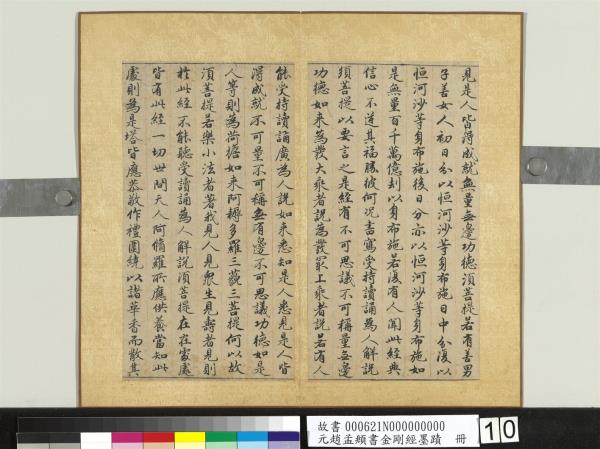 見是人皆得成就無量無邊功德須菩提若有善男
子善女人初日分以恒河沙等身布施日中分復以
恒河沙等身布施後日分亦以恒河沙等身布施如
是無量百千萬億劫以身布施若復有人聞此經典
信心不逆其福勝彼何況書寫受持讀誦為人解說
須菩提以要言之是經有不可思議不可稱量無邊
功德如來為發大乘者說為發最上乘者說若有人
能受持讀誦廣為人說如來悉知是人悉見是人皆
得成就不可量不可稱無有邊不可思議功德如是
人等則為荷擔如來阿耨多羅三藐三菩提何以故
須菩提若樂小法者著我見人見眾生見壽者見則
於此經不能聽受讀誦為人解說須菩提在在處處
皆有此經一切世間天人阿脩羅所應供養當知此
處則為是塔皆應恭敬作禮圍繞以諸華香而散其
故書 000621N000000000
元趙孟頫書金剛經墨蹟 冊
10